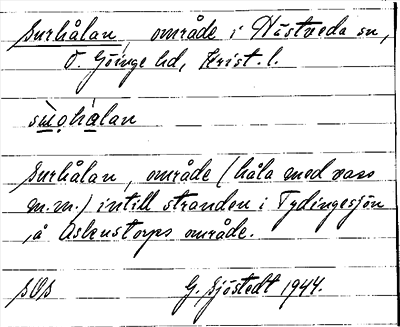 Surhålan, område i Hästveda sn,
Ö. Göinge hd, Krist. l.
Surhålan, område (håla med vass
m.m.) intill stranden i Tydingesjön
å Oskustorps område.
SOS G. Sjöstedt 1944.